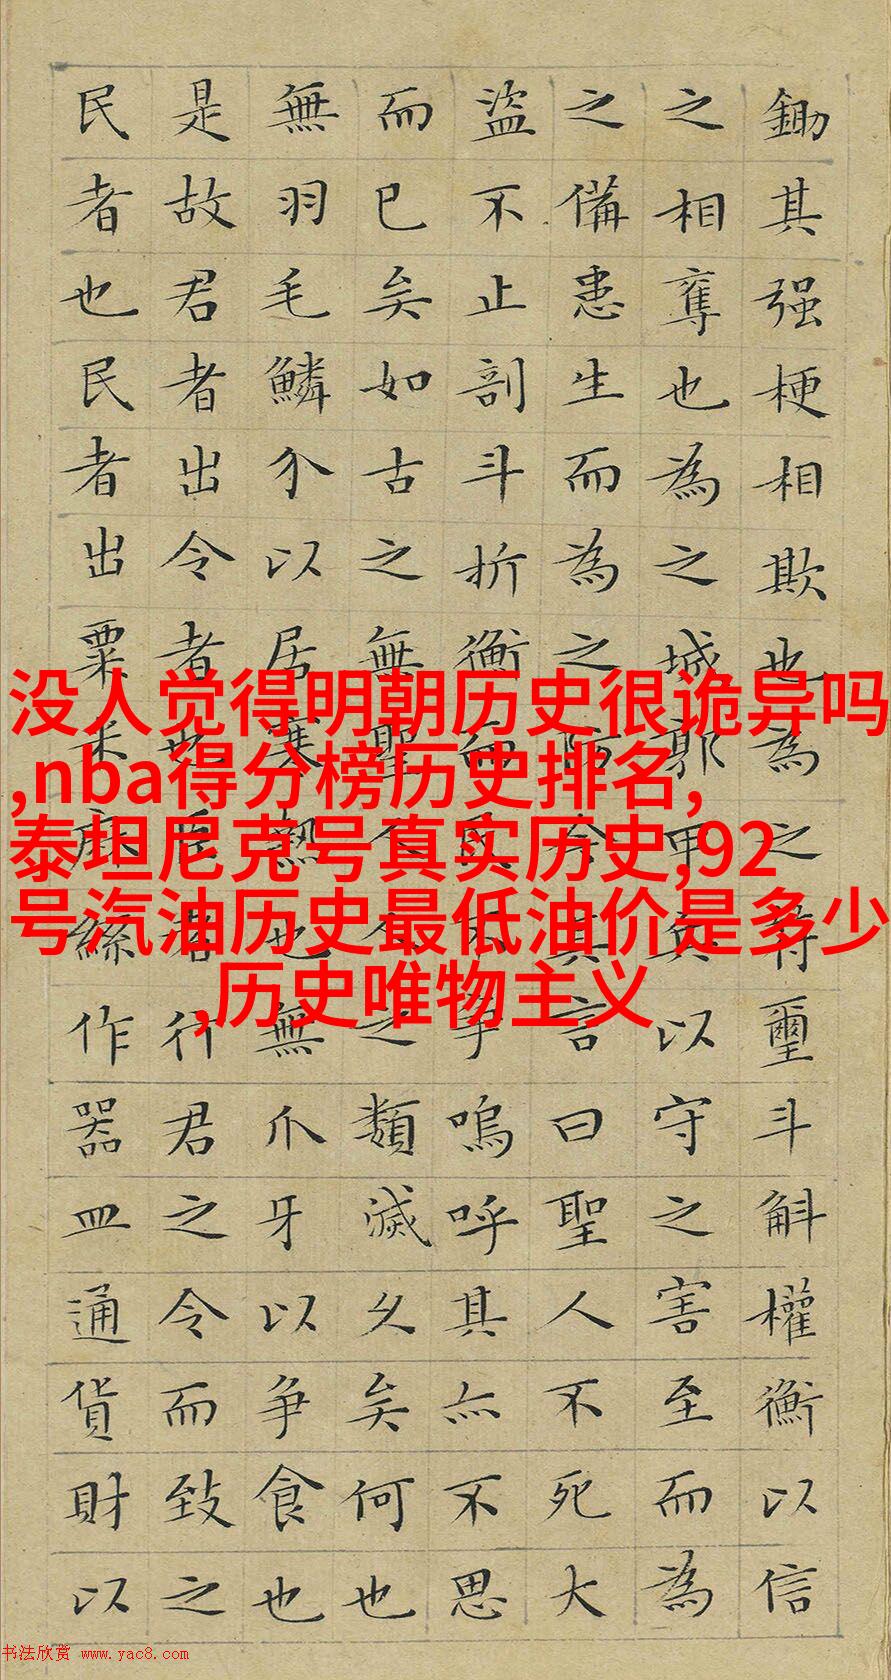 鋤其强梗相欺也為之符璽斗斛權衡以信
之相奪也為之城郭甲兵以守之害至而為
之備患生而為之防今其言曰聖人不死大
盜不止剖斗折衡而民不争嗚呼其亦不思
而已矣如古之無聖人人之類滅久矣何也
無羽毛鱗介以居寒熱也無爪牙以争食也
是故君者出令者也臣者行君之令而致之
民者也民者出粟米麻絲作器皿通貨財以
没人觉得明朝历史很诡异吗
,nba得分榜历史排名,
泰坦尼克号真实历史,92
号汽油历史最低油价是多少
,历史唯物主义
书法欣赏 www.yac8.com